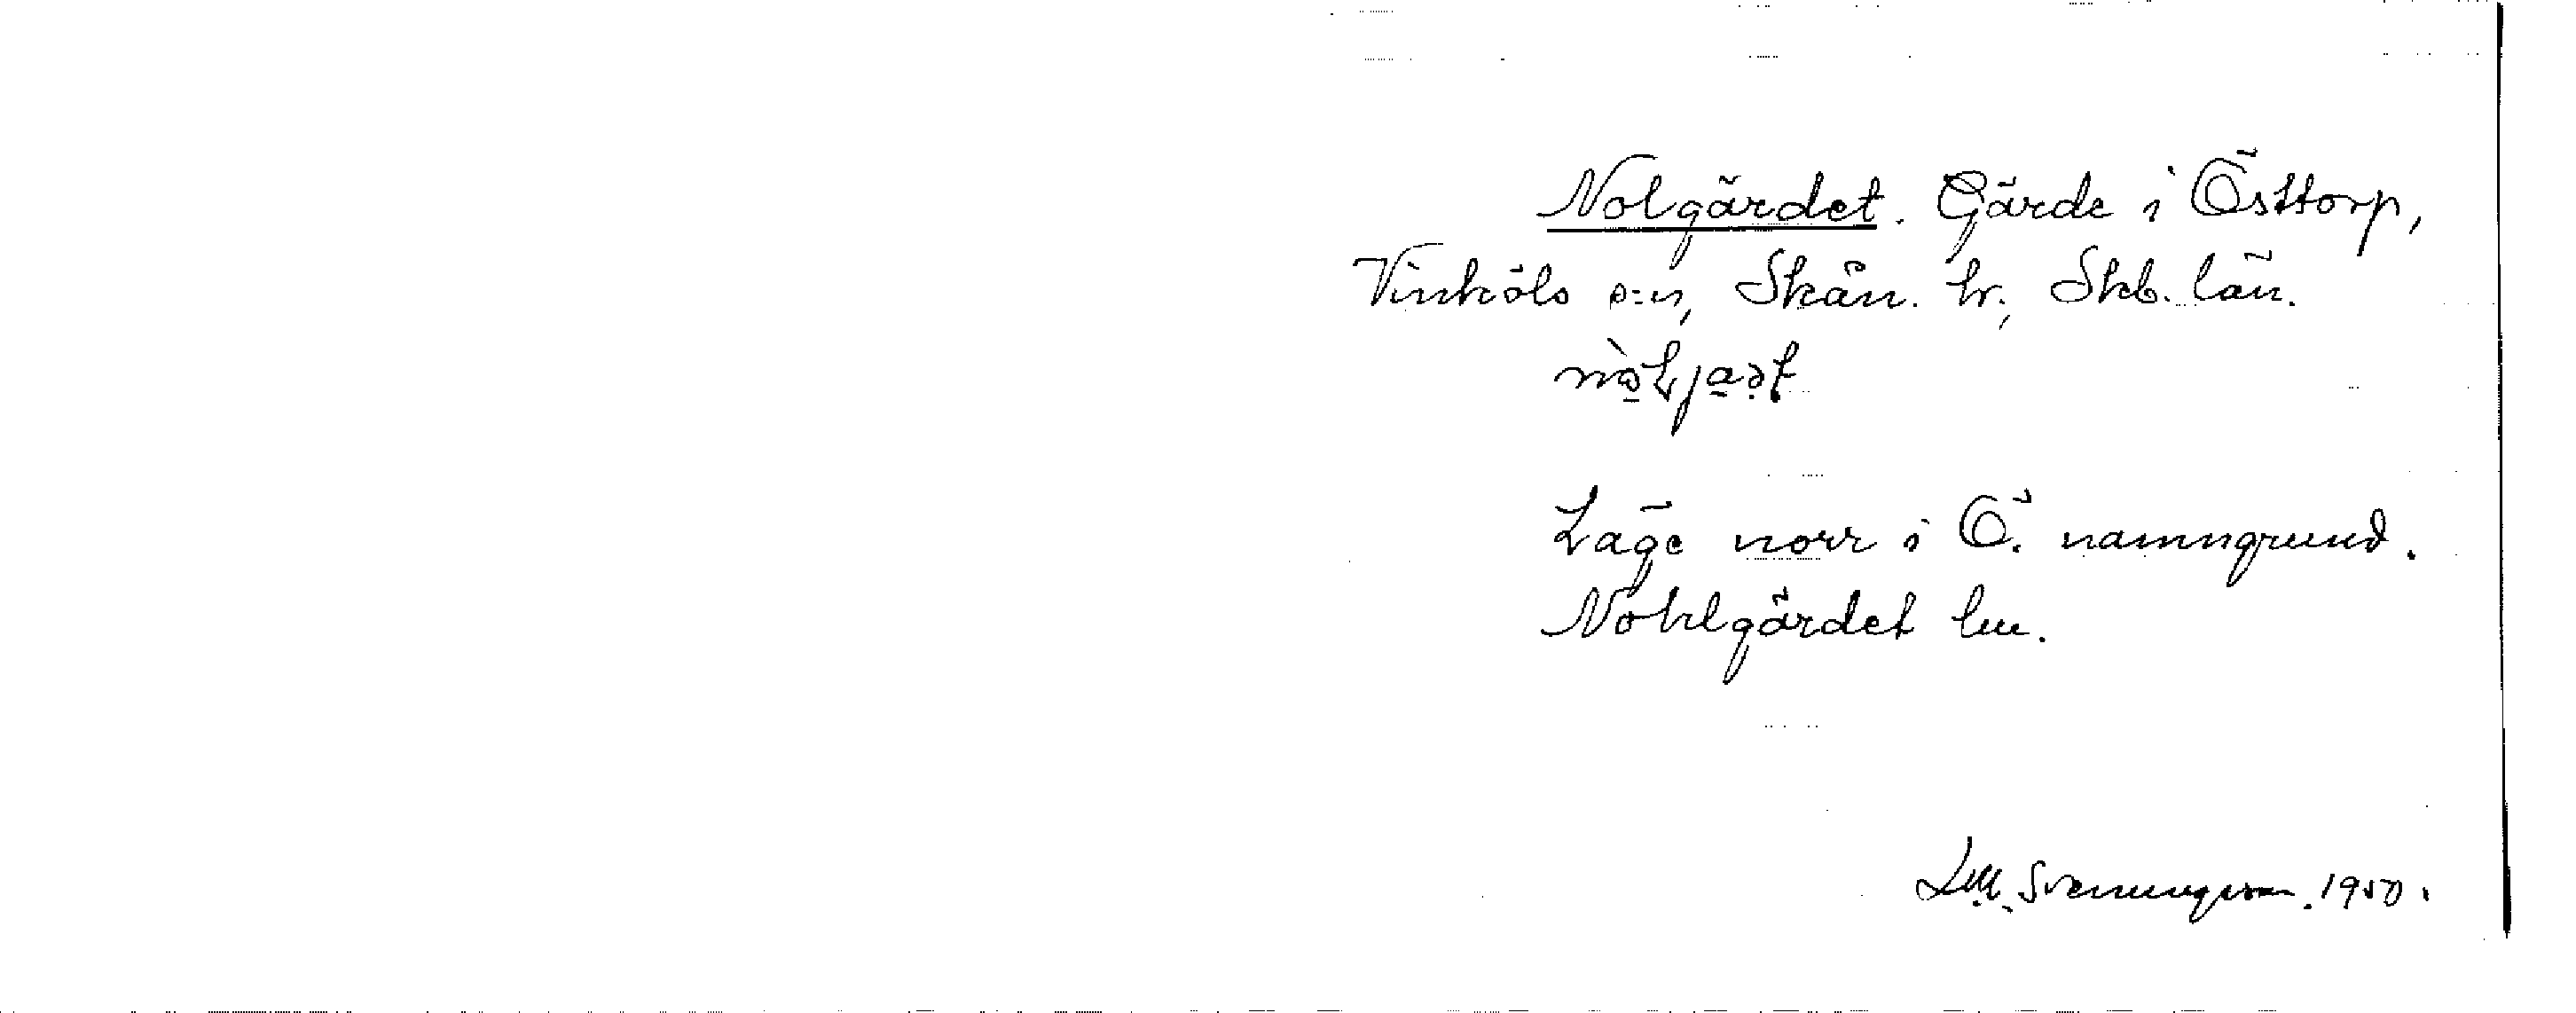 Nolgärdet. Gärde i Östtorp,
Vinköls s:n, Skån. hr, Skb. län.
Läge norr i Ö. namngrund.
Nohlgärdet lm.
Svenungsson. 1950.